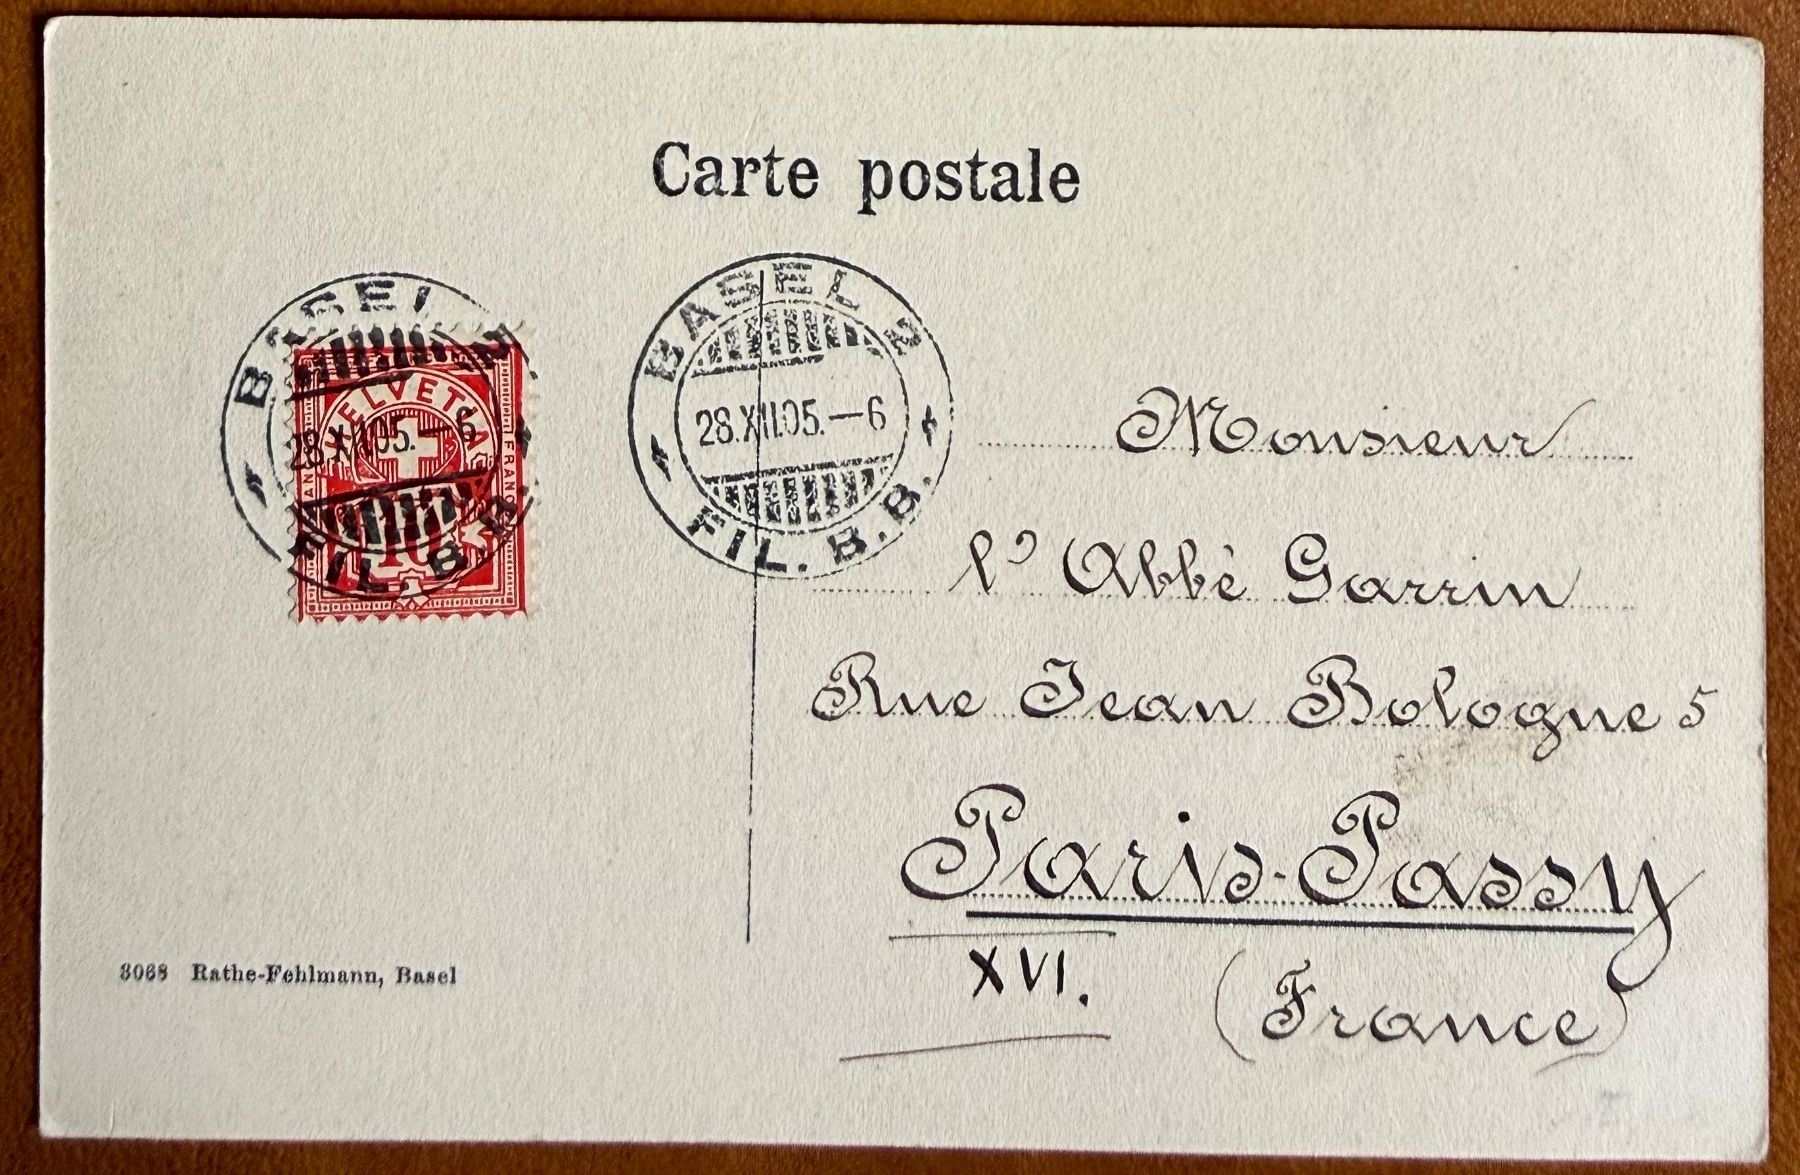 Carte postale
BASEL 2
28.XII.05.—6
FIL. B.B.
HELVETIA
FRANCO
10
BASEL 2
28.XII.05.—6
FIL. B.B.
Monsieur
l'Abbé Garrin
Rue Jean Bologne 5
Paris-Passy
XVI.
(France)
3068 Rathe-Fehlmann, Basel